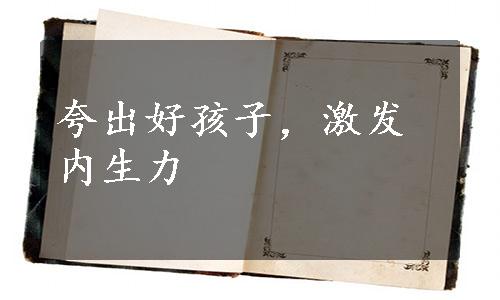 夸出好孩子，激发
内生力